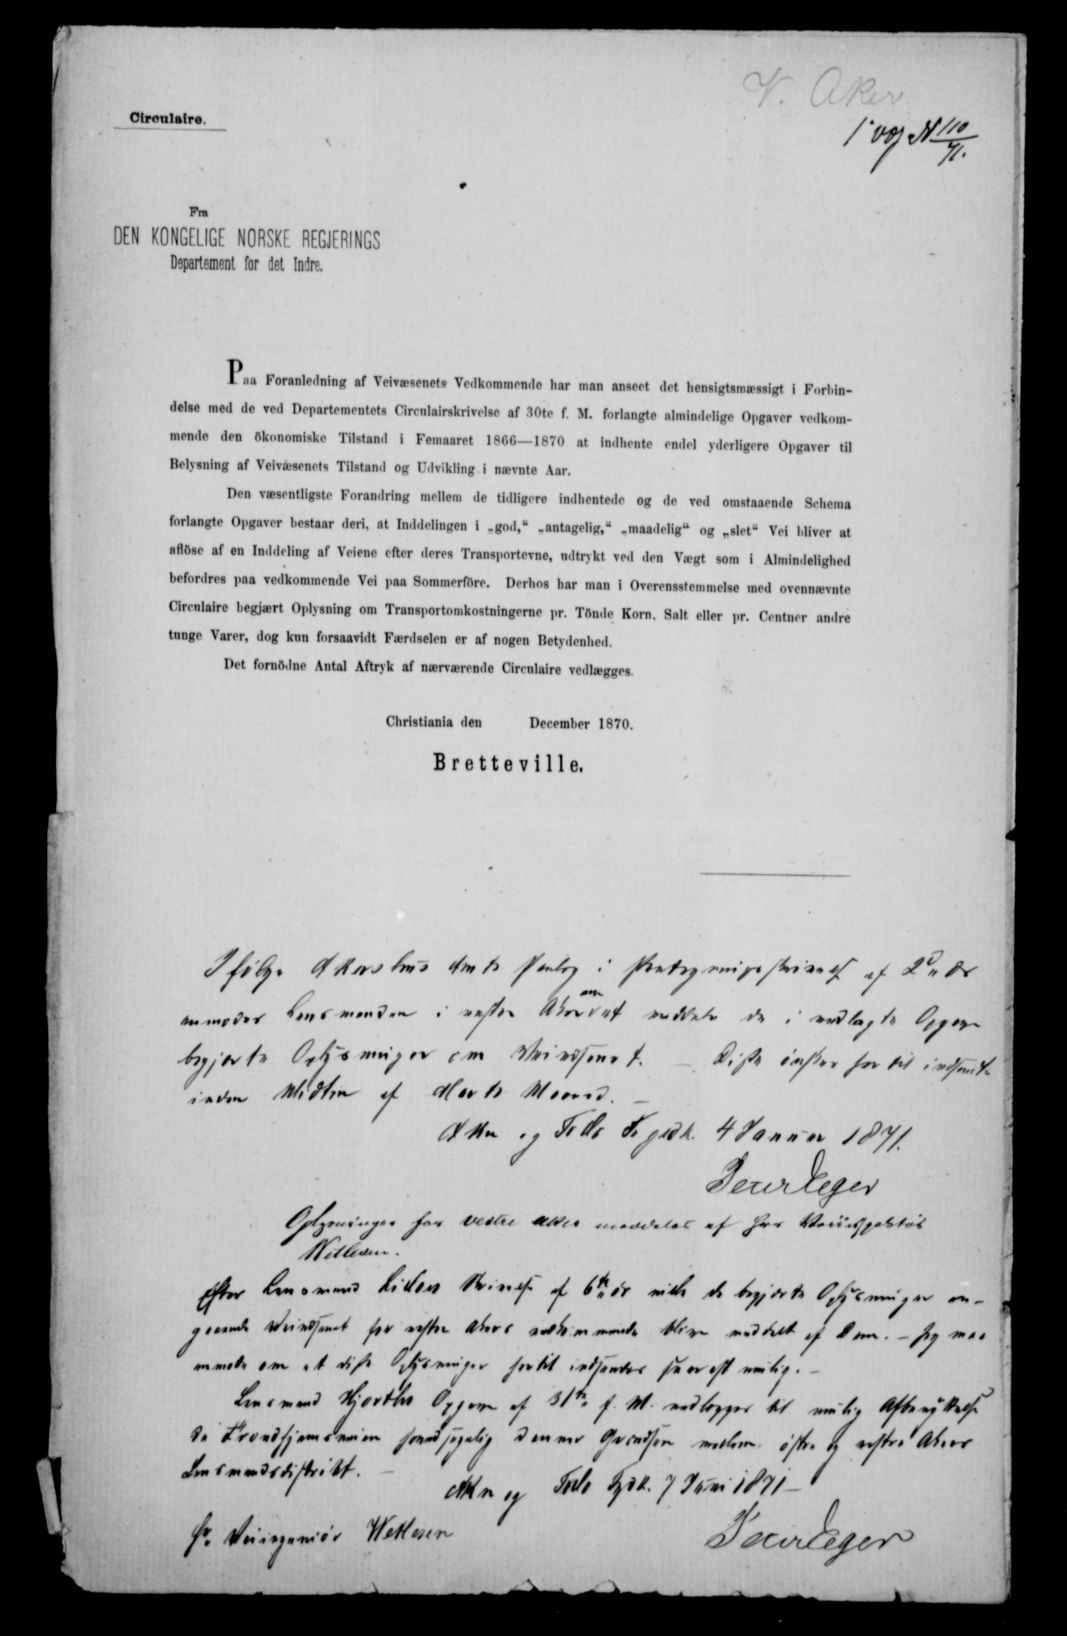 V. Aker
Circulaire.
110
71.
Fra
DEN KONGELIGE NORSKE REGJERINGS
Departement for det Indre.
Paa Foranledning af Veivæsenets Vedkommende har man anseet det hensigtsmæssigt i Forbin-
delse med de ved Departementets Circulairskrivelse af 30te f. M. forlangte almindelige Opgaver vedkom-
mende den ökonomiske Tilstand i Femaaret 1866—1870 at indhente endel yderligere Opgaver til
Belysning af Veivæsenets Tilstand og Udvikling i nævnte Aar.
Den væsentligste Forandring mellem de tidligere indhentede og de ved omstaaende Schema
forlangte Opgaver bestaar deri, at Inddelingen i „god,“ „antagelig,“ „maadelig“ og „slet“ Vei bliver at
aflöse af en Inddeling af Veiene efter deres Transportevne, udtrykt ved den Vægt som i Almindelighed
befordres paa vedkommende Vei paa Sommerföre. Derhos har man i Overensstemmelse med ovennævnte
Circulaire begjært Oplysning om Transportomkostningerne pr. Tönde Korn, Salt eller pr. Centner andre
tunge Varer, dog kun forsaavidt Færdselen er af nogen Betydenhed.
Det fornödne Antal Aftryk af nærværende Circulaire vedlægges.
Christiania den December 1870.
Bretteville.
Ifølge Akershus Amts i af
anmodes Lensmanden i vestre Aker om at meddele de i vedlagte
begjærte Oplysninger om Veivæsenet. – Disse ønskes hertil indsendte
inden Midten af Marts Maaned. –
Aker og Follo Fogd. 4 Januar 1871.
Oplysninger for vestre Aker meddeles af Hr
Efter Lensmand Skrivelse af 6te ds ville de begjærte Oplysninger an-
gaaende Veivæsenet for vestre Akers vedkommende blive meddelt af Dem. – Jeg maa
anmode om at disse Oplysninger hertil indsendes snarest mulig. –
Lensmand Hjorths Opgave af 31te f. M. vedlægges til mulig Afbenyttelse
da Trondhjemsveien danner Grændsen mellem østre og vestre Akers
Lensmandsdistrikt. –
Aker og Follo Fogd. 7 Juni 1871 –
Hr. Veiingeniør